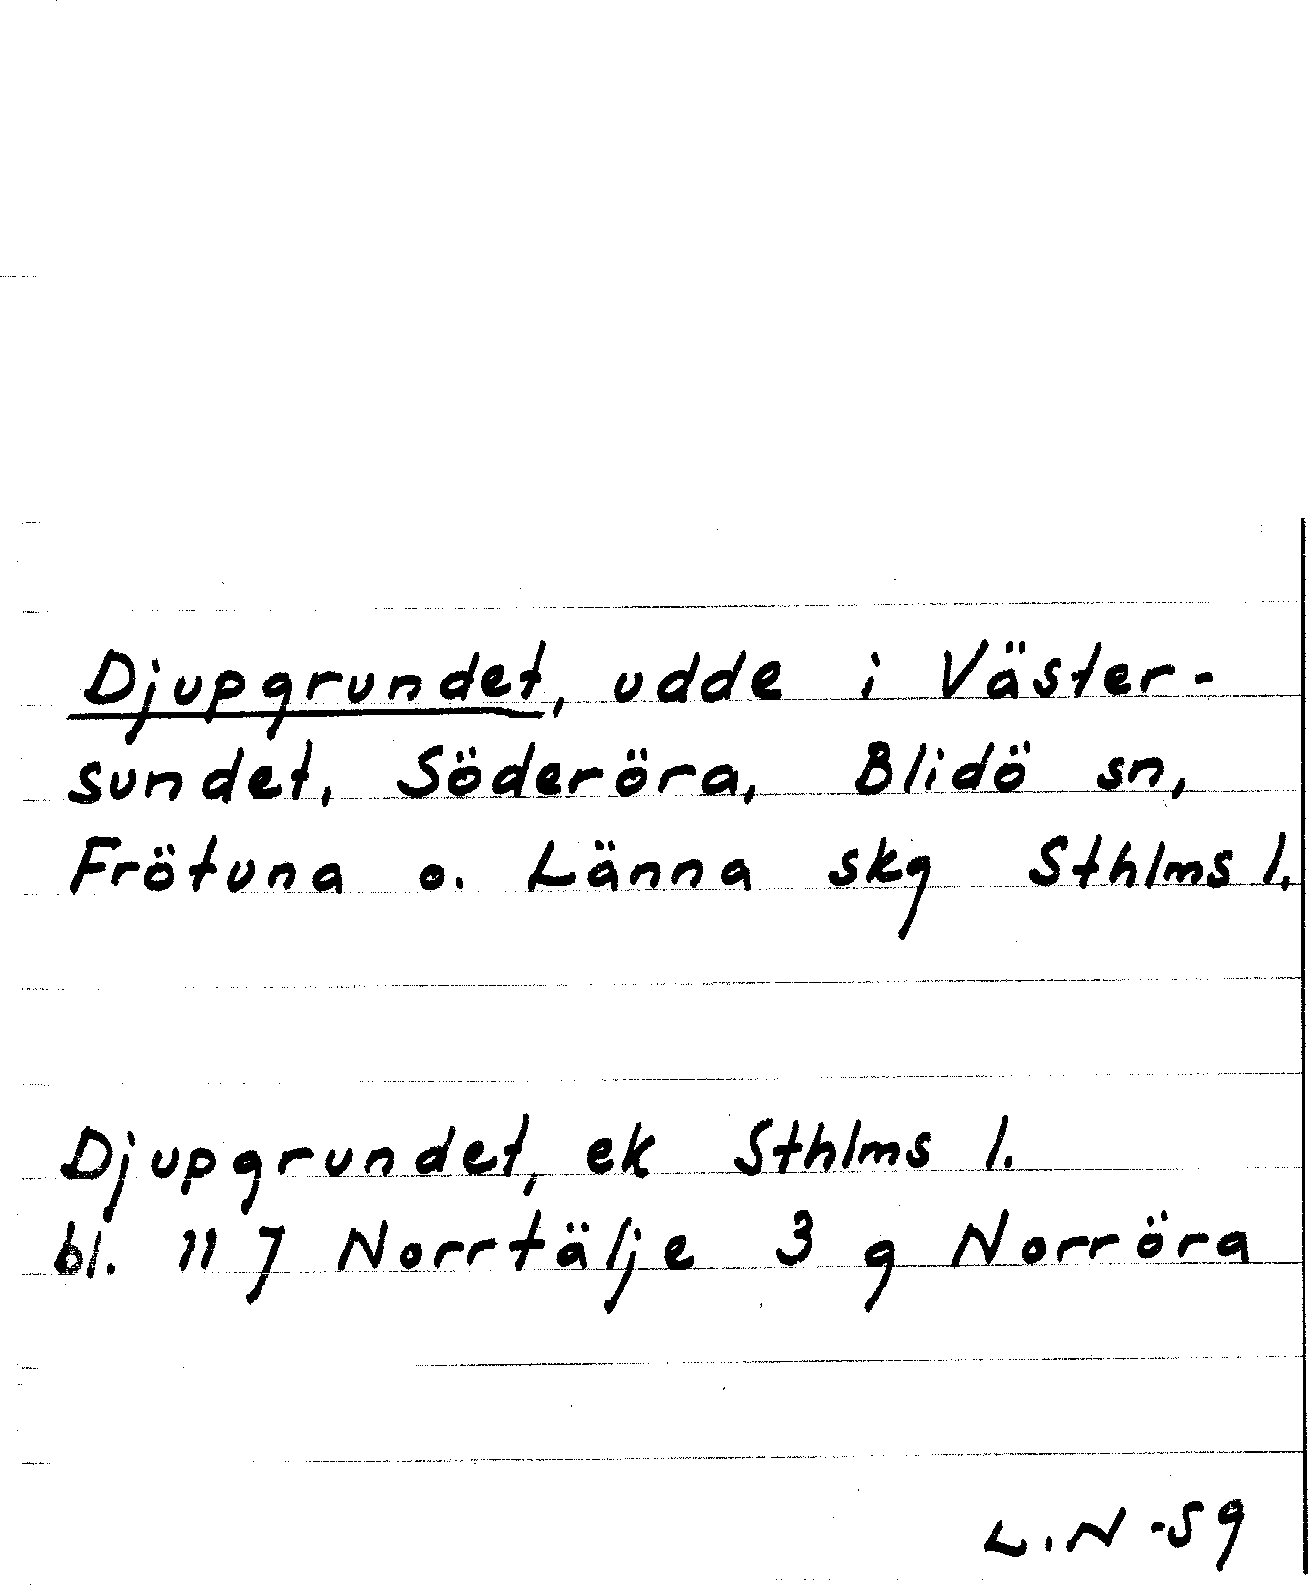 Djupgrundet, udde i Väster-
sundet, Söderöra, Blidö sn,
Frötuna o. Länna skg Sthlms l.
Djupgrundet, ek Sthlms l.
bl. 11 J Norrtälje 3 g Norröra
L.N -59